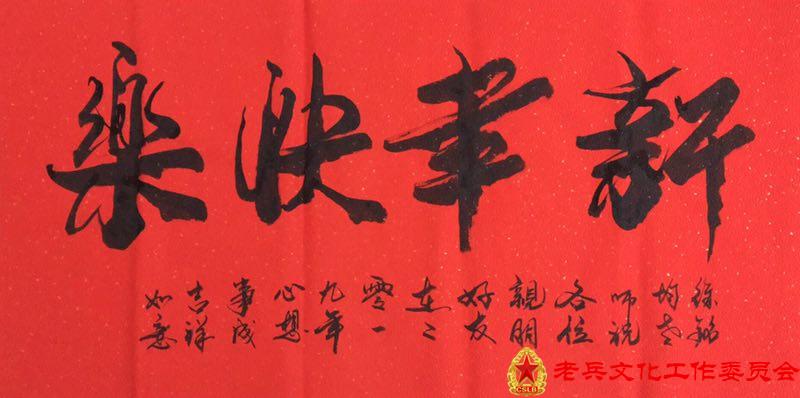 新年快樂
徐銘
均老
师祝
各位
親朋
好友
在二
零一
九年
心想
事成
吉祥
如意
老兵文化工作委员会
CSLB